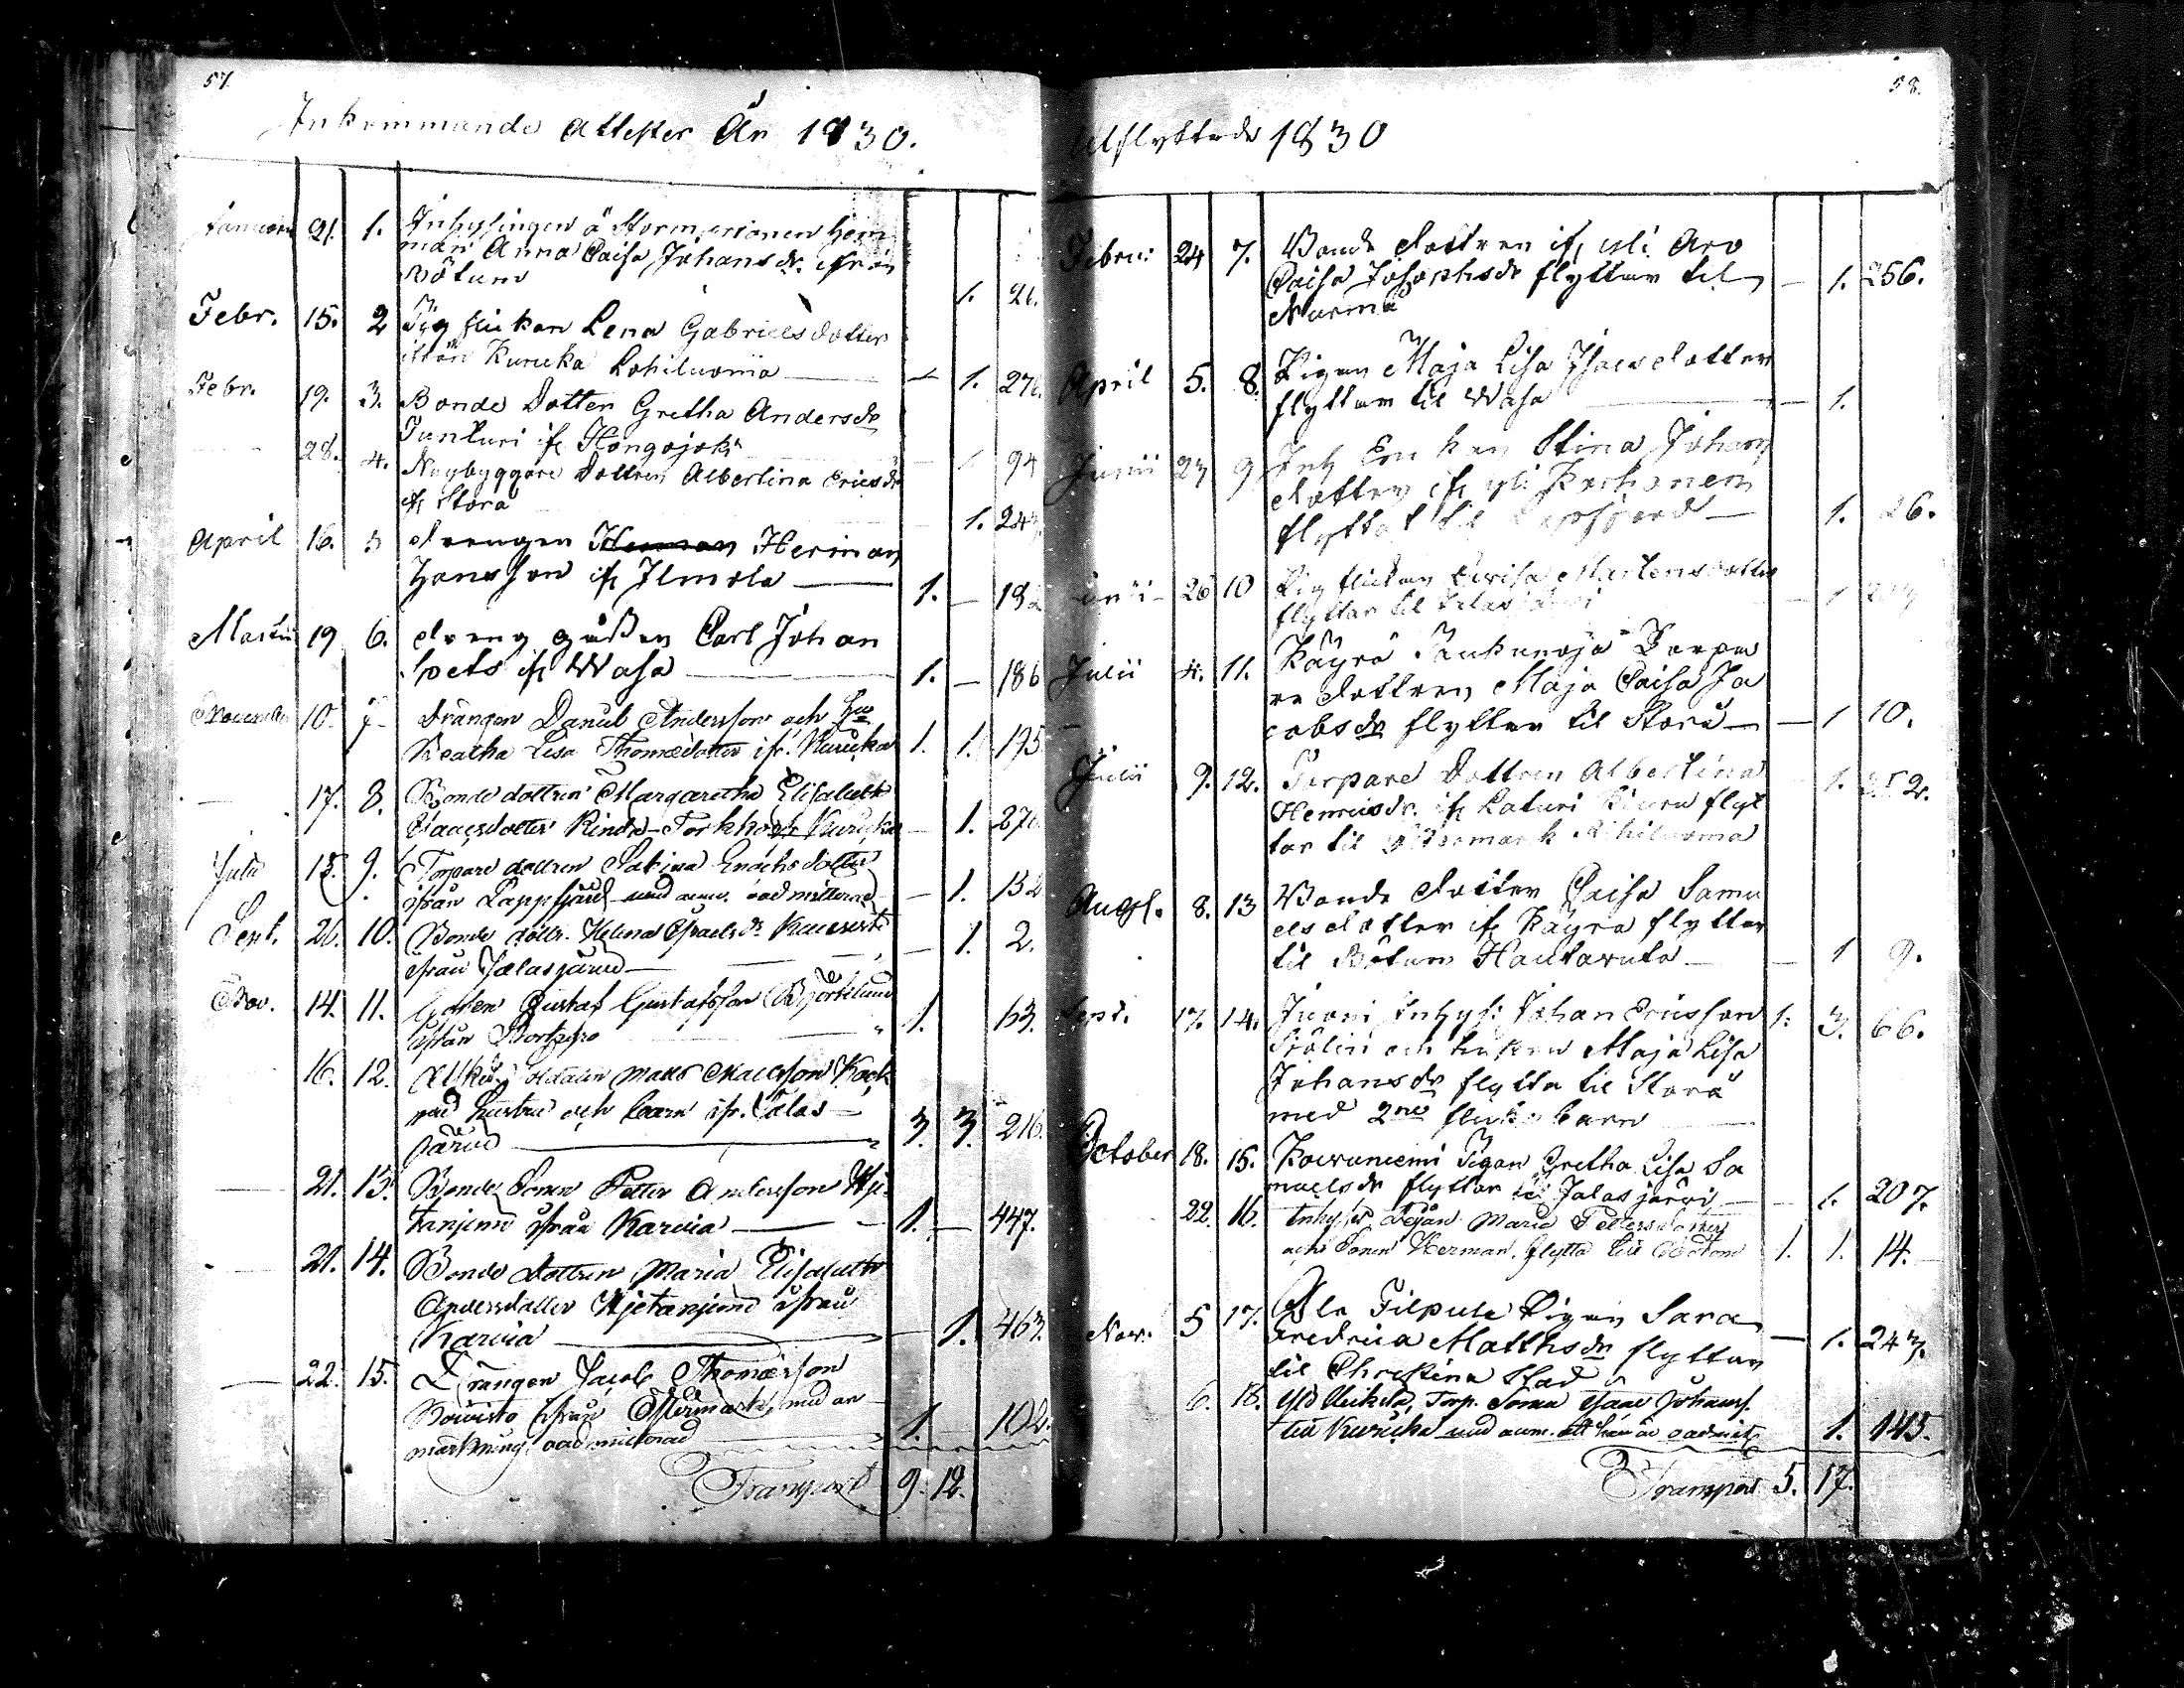 57.
Inkommande Attester År 1830.
Januari 21. 1. Inhysingen å hem
man Anna Caisa Johansdr. ifrån
Bötum 1. 21.
Febr. 15. 2 Pig flickan Lena Gabrielsdotter
ifrån Kuricka Lohiluoma 1. 276.
Febr. 19. 3. Bonde Dotter Gretha Andersdr
Junturi ifr Hongojoki 1 94
28. 4. Nuybyggare Dottren Albertina Ericsdr
ifr Storå 1. 243.
April 16. 5 drengen Herman Herman
Hansson ifr Ilmola 1. — 182
Martii 19 6. dreng gåssen Carl Johan
Spets ifr Wasa 1. — 186
November 10. 7 Drängen Daniel Andersson och Hu
Beatha Lisa Thomædotter ifr. Kuricka 1. 1. 195
— 17. 8. Bonde dottren Margaretha Elisabeth
Isaacsdotter Rinda-Torkko ifr Kuricka — 1. 270.
Julii 15. 9. Torpare dottren Sabina Enochsdotter
ifrån Lappfjärd med anm. oadmitterad — 1. 132
Sept. 26. 10. Bonde dottr. Helena Israelsdr.
ifrån Jalasjärvi — 1. 2.
Nov. 14. 11. Gossen Gustaf Gustafsson Björklund
ifrån 1. 163.
16. 12. Afsk: Soldaten Matts Mattsson Kock
med hustru och barn ifr. Jalas-
järvi 3. 3. 216.
— 21. 13. Bonde Sonen Petter Andersson
ifrån Karvia 1. — 447.
— 21. 14. Bonde Dottren Maria Elisabeth
Andersdotter ifrån
Karvia — 1. 463.
— 22. 15. Drängen Jacob Thomasson
Koivisto ifrån Östermark, med an-
märkning, oadmitterad 1. 102.
Transport 9. 12.
58.
Utflyttade 1830
Febru: 24 7. Bonde dottren ifr yli Aro
Caisa Josephsdr flyttar til
Nurmo — 1. 256.
April 5. 8. Pigan Maja Lisa Isacsdotter
flyttar til Wasa — 1.
Junii 23 9 Inh Enkan Stina Johans
dotter ifr yli
flyttat til Lappfjärd — 1. 26.
Junii 26 10 Pigflickan Lovisa Mårtensdotter
flyttar til Jalasjärvi — 1
Julii 4. 11. Käyrä Torpa
re dottren Maja Caisa Ja
cobsdr flyttar til Storå — 1 10.
Julii 9. 12. Torpare Dottren Albertina
Henricsdr. ifr flyt
tar til Östermark — 1. 252.
Augst. 8. 13 Bonde dotter Caisa Samu
elsdotter ifr Käyrä flyttar
til Bötum Hautavuta — 1 9.
Sept. 17. 14. Juoni Inhys: Johan Ericsson 1. 3. 66.
Siölin och hustru Maja Lisa
Johansdr flytta til Storå
med 2ne flicko barn
October 18. 15. Koivuniemi Pigan Gretha Lisa Sa
muelsdr flyttar til Jalasjärvi — 1. 207.
22. 16. Inhyses Maria Pettersdotter
och Sonen Herman, flytta till Bötom 1. 1. 14.
Nov. 5 17. Ala Filpula Pigan Sara
Fredrica Matthsdr flyttar
til Christina Stad — 1. 243.
6. 18. Torp. Sonen Isaac Johanss.
till Kuricka med anm. att han är oadmit 1. 145.
Transport 5. 17.